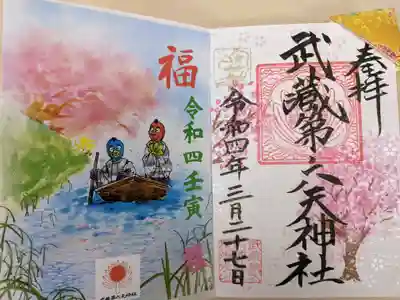 奉拝
武蔵第六天神社
令和四年三月二十七日
福
令和四壬寅